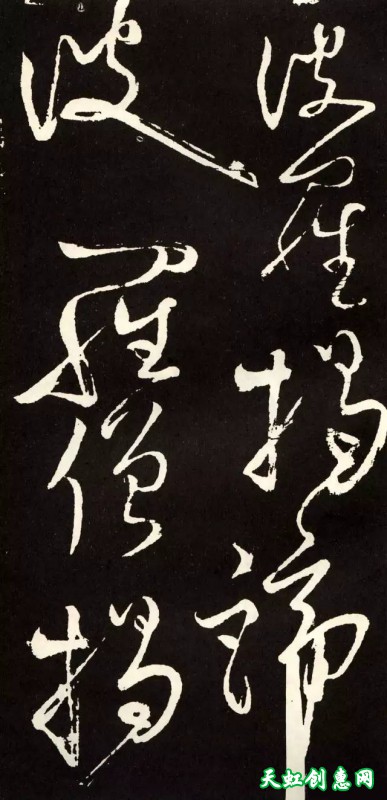 波羅揭諦
波羅僧揭
天虹创意网